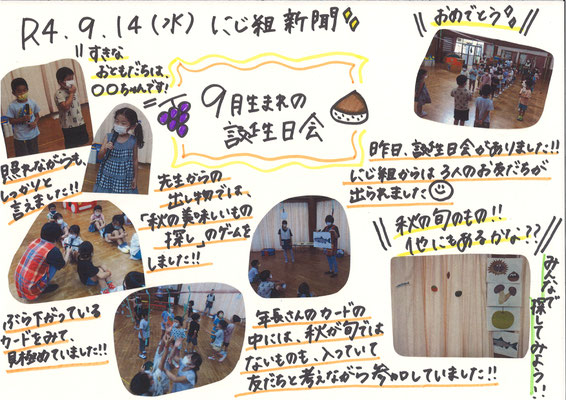 R4.9.14(水) にじ組新聞
すきな
おともだちは、
〇〇ちゃんです!
9月生まれの
誕生日会
おめでとう
昨日、誕生日会がありました!!
にじ組からは3人のお友だちが
出られました
照れながらも、
しっかりと
言えました!!
先生からの
出し物では、
「秋の美味しいもの
探し」のゲームを
しました!!
秋の旬のもの!!
他にもあるかな??
みんなで
探してみよう!!
ぶら下がっている
カードをみて、
見極めていました!!
年長さんのカードの
中には、秋が旬では
ないものも、入っていて
友だちと考えながら参加していました!!